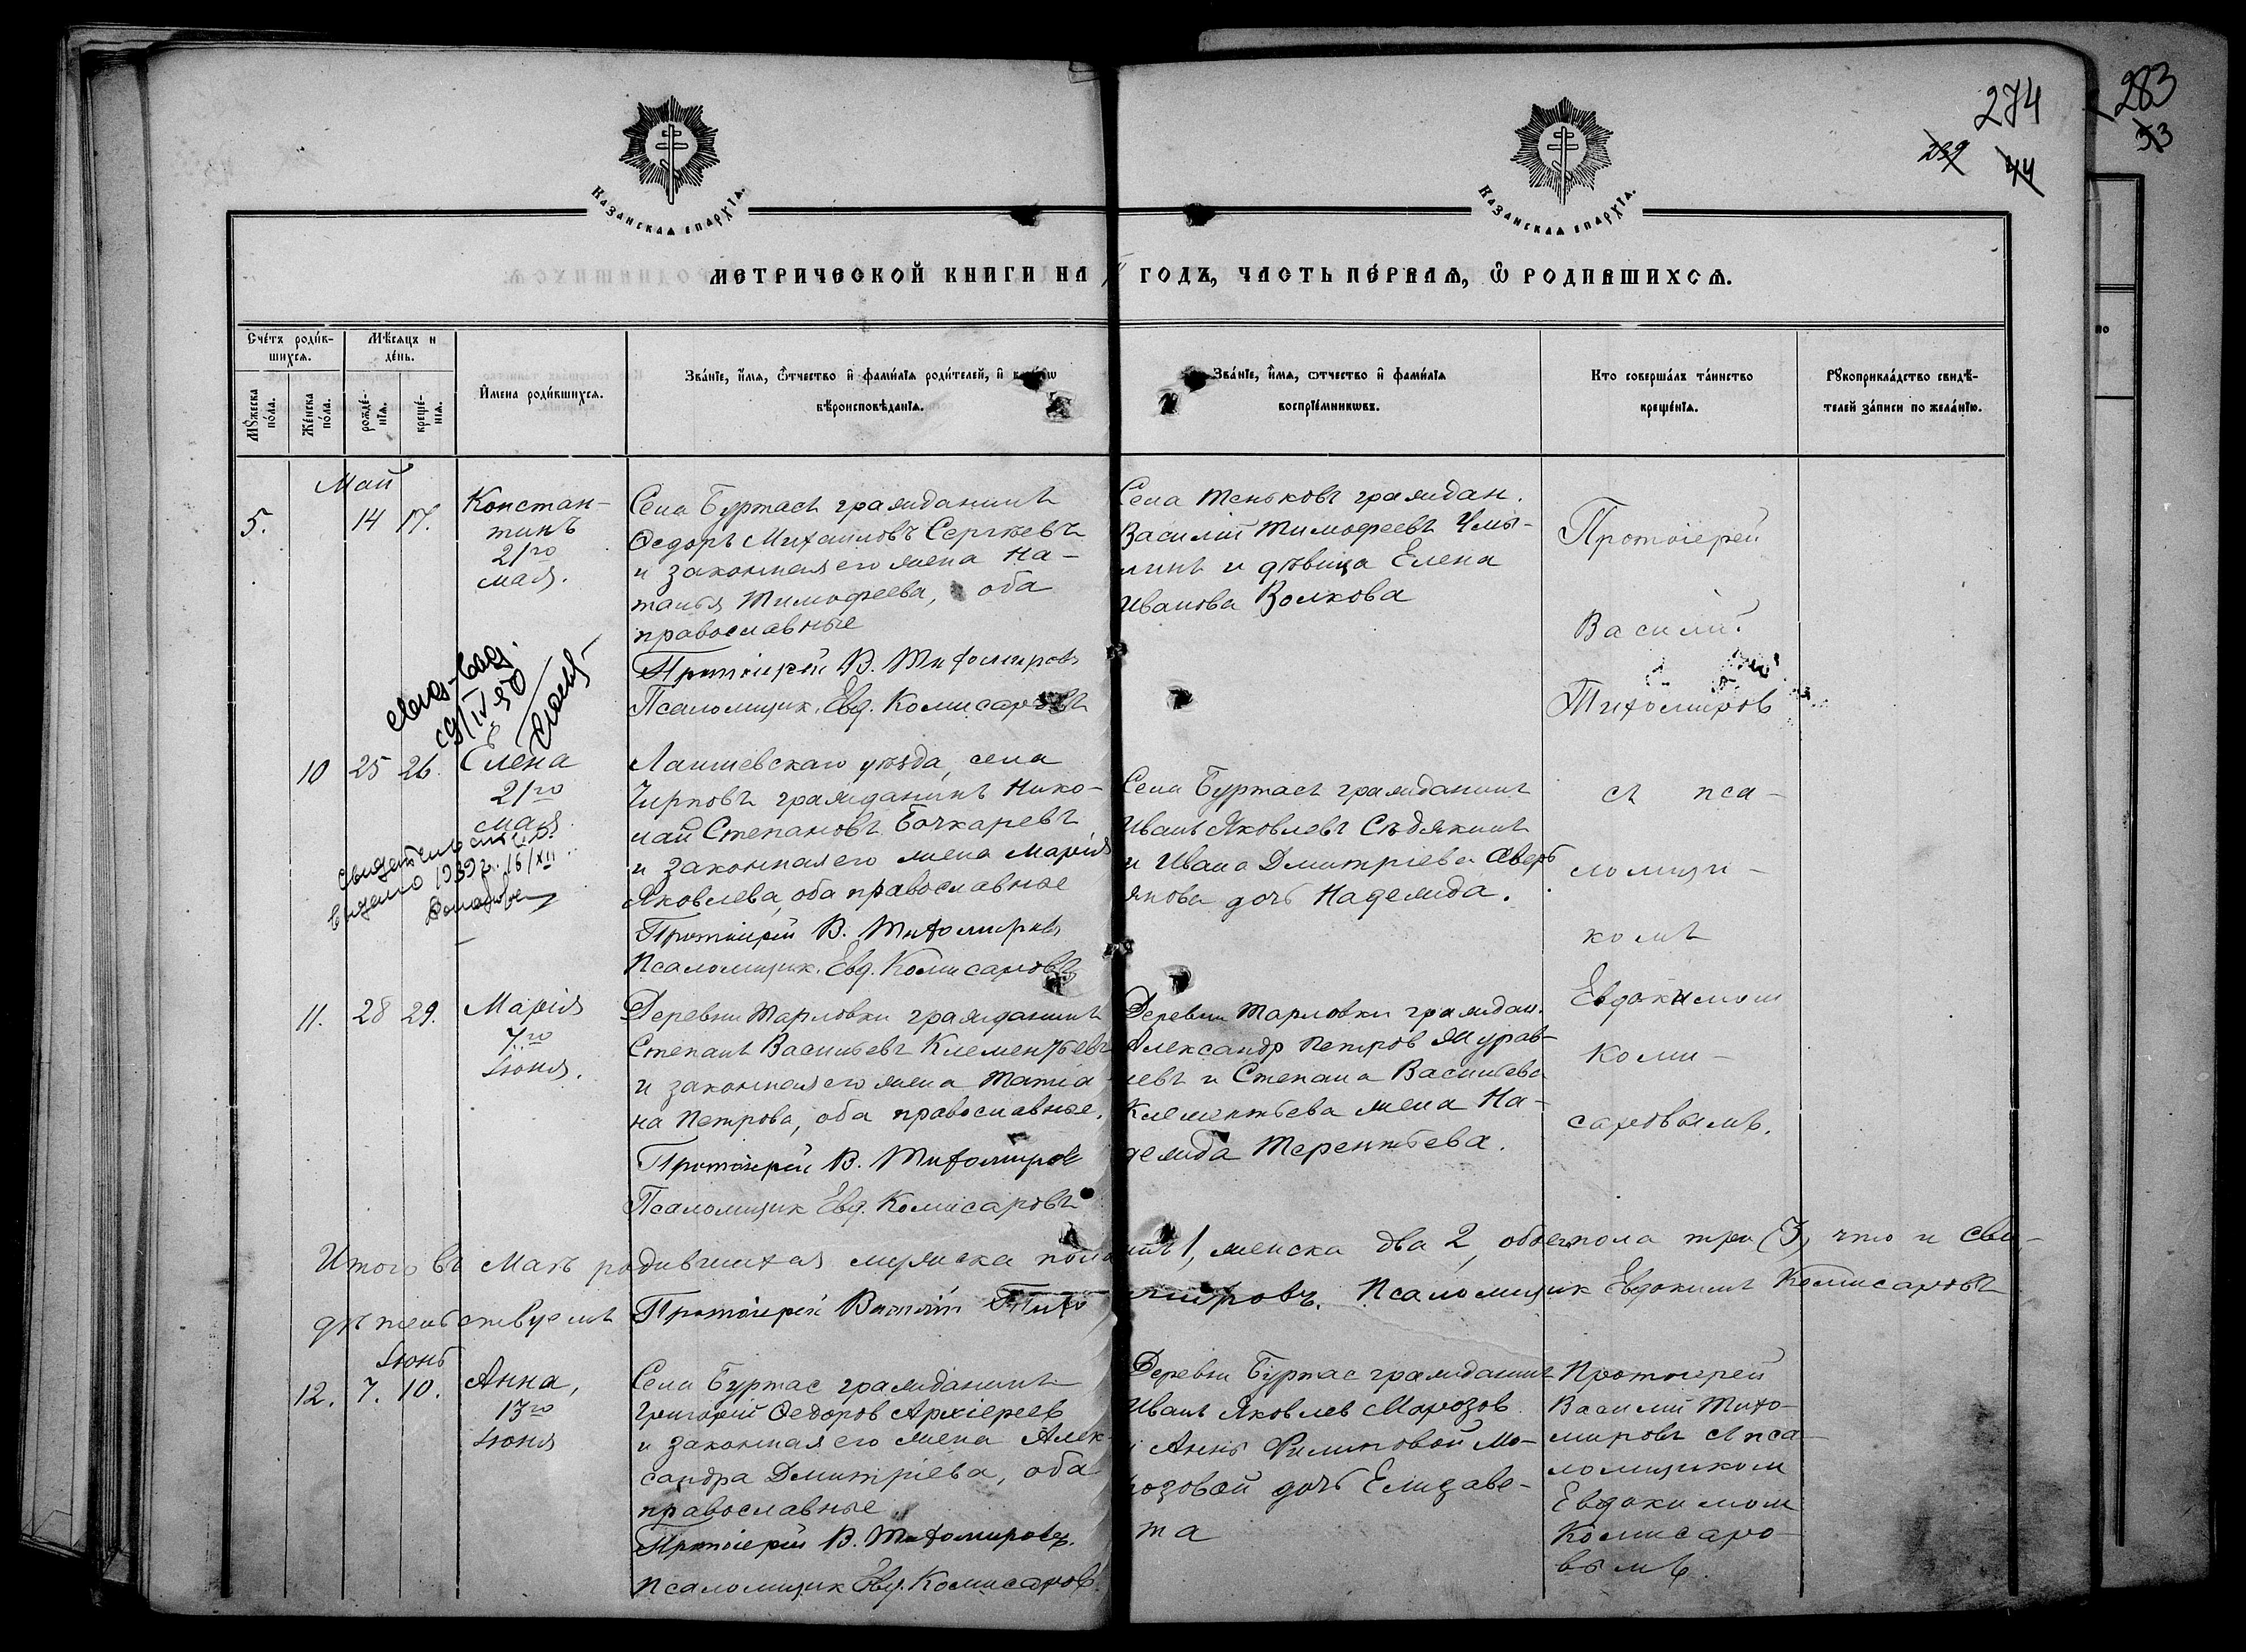 274
283
239
44
33
Казанская епархїа.
Казанская епархїа.
МЕТРИЧЕСКОЙ КНИГИ НА
ГОДЪ, ЧАСТЬ ПЕРВАѦ, Ѿ РОДИВШИХСѦ.
Счетъ родившихсѧ.
Мѣсѧцъ и день.
Мꙋжеска пола.
Женска пола.
рожденїѧ.
крещенїѧ.
Имена родившихсѧ.
Званїе, имѧ, ѿчество и фамилїѧ родителей, и
вѣроисповѣданїѧ.
Званїе, имѧ, ѿчество и фамилїѧ
воспрїемникѡвъ.
Кто совершалъ таинство
крещенїѧ.
Рꙋкоприкладство свидѣ-
телей записи по желанїю.
Май
5.
14 17.
Констан-
тинъ
21го
мая.
Села Буртасъ гражданинъ
Ѳедоръ Михаиловъ Сергѣевъ
и законная его жена На-
талья Тимофеева, оба
православные
Протоіерей В. Тихомировъ
Псаломщик. Евд. Комисаровъ
Села Теньковъ граждан.
Василій Тимофеевъ Чмы-
линъ и дѣвица Елена
Иванова Волкова
Протоіерей
Василій
Тихомиров
10 25 26.
Елена
21го
мая
Свидетельство
выдано 1939г. 16/XII
Лаишевскаго уѣзда, села
Чирповъ гражданинъ Нико-
лай Степановъ Бочкаревъ
и законная его жена Марія
Яковлева, оба православные
Протоіерей В. Тихомировъ
Псаломщик. Евд. Комисаровъ
Села Буртасъ гражданинъ
Иванъ Яковлевъ Сѣдякинъ
и Ивана Дмитріева Авер
янова дочь Надежда.
съ пса-
ломщи-
комъ
Евдокимом
Коми-
саровымъ.
11. 28 29.
Марія
7го
Іюня.
Деревни Тарловки гражданинъ
Степанъ Васильевъ Клементьевъ
и законная его жена Татіа
на Петрова, оба православные.
Протоіерей В. Тихомиров
Псаломщик Евд. Комисаровъ
Деревни Тарловки граждан.
Александр Петров Журав-
левъ и Степана Васильева
Клементьева жена На-
дежда Терентьева.
Итого въ Маѣ родившихся мужеска пола
1, женска два 2, обоего пола три (3) что и сви-
дѣтельствуемъ Протоіерей Василій Тихо
мировъ. Псаломщик Евдокимъ Комисаровъ
Іюнь
12. 7. 10.
Анна,
13го
Іюня
Села Буртас гражданинъ
Григорій Ѳедоров Архіереев
и законная его жена Алек-
сандра Дмитріева, оба
православные
Протоіерей В. Тихомировъ.
Псаломщик Евд. Комисаров.
Деревни Буртас гражданинъ
Иванъ Яковлев Марозов
и Анны Филиповой Мо-
розовой дочь Елизаве-
та
Протоіерей
Василий Тихо-
мировъ съ пса-
ломщиком
Евдокимом
Комисаро-
вымъ.